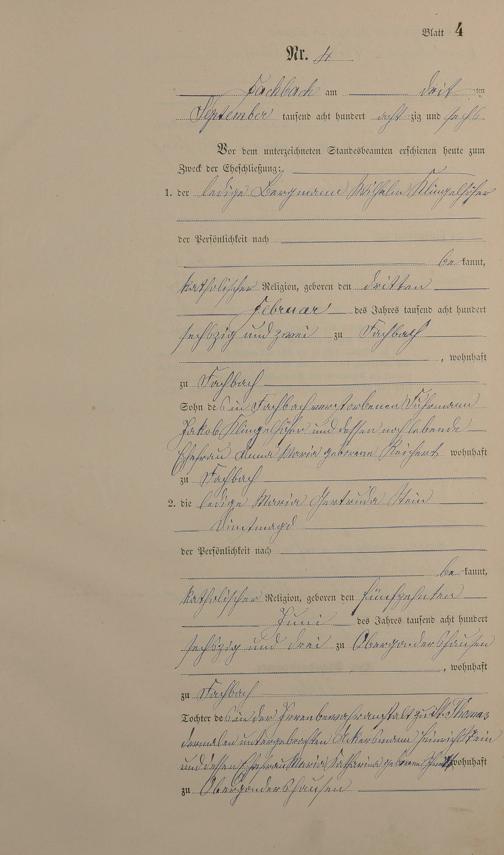 Blatt 4
Nr. 4
Fachbach am
September tausend acht hundert acht zig und sechs
Vor dem unterzeichneten Standesbeamten erschienen heute zum
Zweck der Eheschließung:
1. der ledige Bergmann Wilhelm Klingelhöfer
der Persönlichkeit nach
be kannt,
katholischer Religion, geboren den dritten
Februar des Jahres tausend acht hundert
sechszig und zwei zu Fachbach
, wohnhaft
zu Fachbach
Sohn des in Fachbach verstorbenen Fuhrmann
Jakob Klingelhöfer und dessen noch lebende
Ehefrau Anna Maria geborene Reichert wohnhaft
zu Fachbach
2. die ledige Maria Gertruda Stein
Dienstmagd
der Persönlichkeit nach
be kannt,
katholischer Religion, geboren den fünfzehnten
Juni des Jahres tausend acht hundert
sechszig und drei zu Obergondershausen
, wohnhaft
zu Fachbach
Tochter des in der Irrenbewahranstalt zu St. Thomas
dermalen untergebrachten Ackersmann Heinrich Stein
und dessen Ehefrau Maria Katharina geborene wohnhaft
zu Obergondershausen